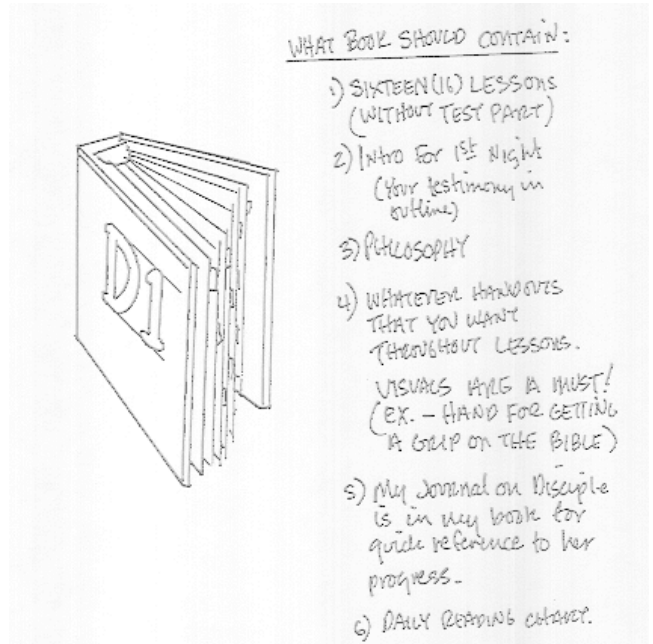 WHAT BOOK SHOULD CONTAIN:
1) SIXTEEN (16) LESSONS
(WITHOUT TEST PART)
2) Intro For 1st Night
(Your testimony in
outline)
3) PHILOSOPHY
4) WHATEVER HANDOUTS
THAT YOU WANT
THROUGHOUT LESSONS.
VISUALS ARE A MUST!
(EX. - HAND FOR GETTING
A GRIP ON THE BIBLE)
5) My Journal on Disciple
is in my book for
quick reference to her
progress.
6) DAILY READING CHART.
D1